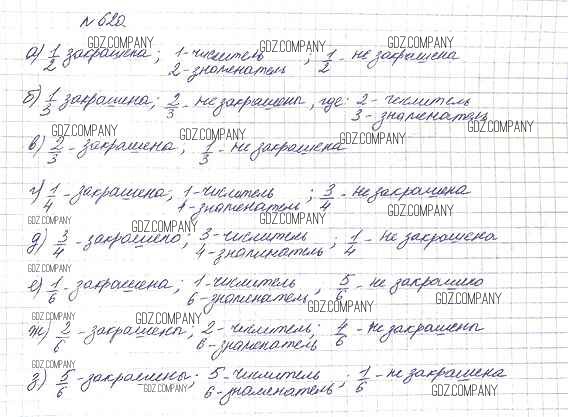 № 620
GDZ.COMPANY GDZ.COMPANY GDZ.COMPANY
а) 1/2 закрашена; 1 - числитель ; 1/2 - не закрашена
2 - знаменатель
GDZ.COMPANY GDZ.COMPANY
б) 1/3 закрашена; 2/3 - не закрашены, где: 2 - числитель
3 - знаменатель
GDZ.COMPANY GDZ.COMPANY GDZ.COMPANY GDZ.COMPANY
в) 2/3 - закрашена, 1/3 - не закрашена
GDZ.COMPANY GDZ.COMPANY
г) 1/4 - закрашена; 1 - числитель ; 3/4 - не закрашена
знаменатель
GDZ.COMPANY GDZ.COMPANY GDZ.COMPANY GDZ.COMPANY
д) 3/4 - закрашено; 3 - числитель ; 1/4 - не закрашена
4 - знаменатель
GDZ.COMPANY GDZ.COMPANY
е) 1/6 - закрашена; 1 - числитель ; 5/6 - не закрашено
6 - знаменатель
GDZ.COMPANY GDZ.COMPANY GDZ.COMPANY GDZ.COMPANY
ж) 2/6 - закрашены; 2 - числитель; 4/6 - не закрашены
6 - знаменатель
GDZ.COMPANY GDZ.COMPANY
з) 5/6 - закрашены; 5 - числитель ; 1/6 - не закрашена
6 - знаменатель
GDZ.COMPANY GDZ.COMPANY